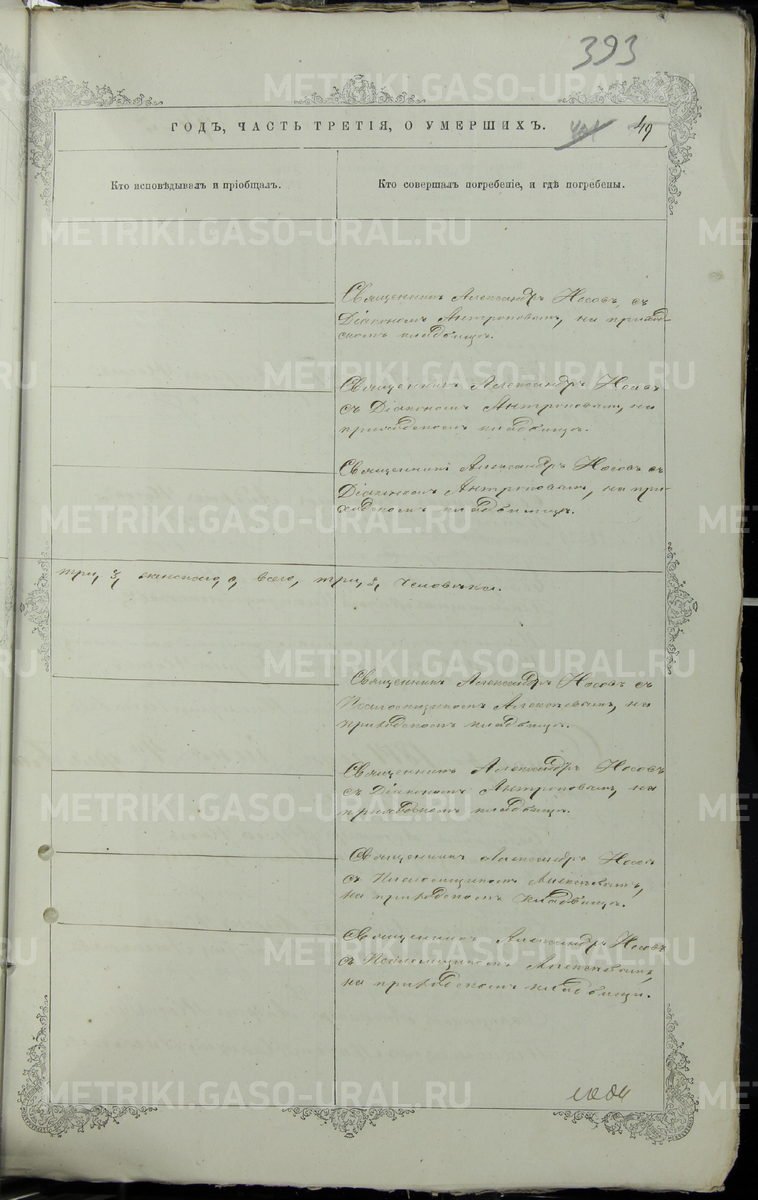 393
ГОДЪ, ЧАСТЬ ТРЕТІЯ, О УМЕРШИХЪ.
49
Кто исповѣдывалъ и пріобщалъ.
Кто совершалъ погребеніе, и гдѣ погребены.
Священникъ Александръ Носовъ, съ
Діакономъ Антроповымъ, на приход-
скомъ кладбищѣ.
Священникъ Александръ Носовъ
съ Діакономъ Антроповымъ, на
приходскомъ кладбищѣ.
Священникъ Александръ Носовъ съ
Діакономъ Антроповымъ, на при-
ходскомъ кладбищѣ.
три, 3, женскаго, всего, три, 3, человѣка.
Священникъ Александръ Носовъ съ
Псаломщикомъ Алексѣевымъ, на
приходскомъ кладбищѣ.
Священникъ Александръ Носовъ
съ Діакономъ Антроповымъ, на
приходскомъ кладбищѣ.
Священникъ Александръ Носовъ
съ Псаломщикомъ Алексѣевымъ,
на приходскомъ кладбищѣ.
Священникъ Александръ Носовъ
съ Псаломщикомъ Алексѣевымъ,
на приходскомъ кладбищѣ.
METRIKI.GASO-URAL.RU